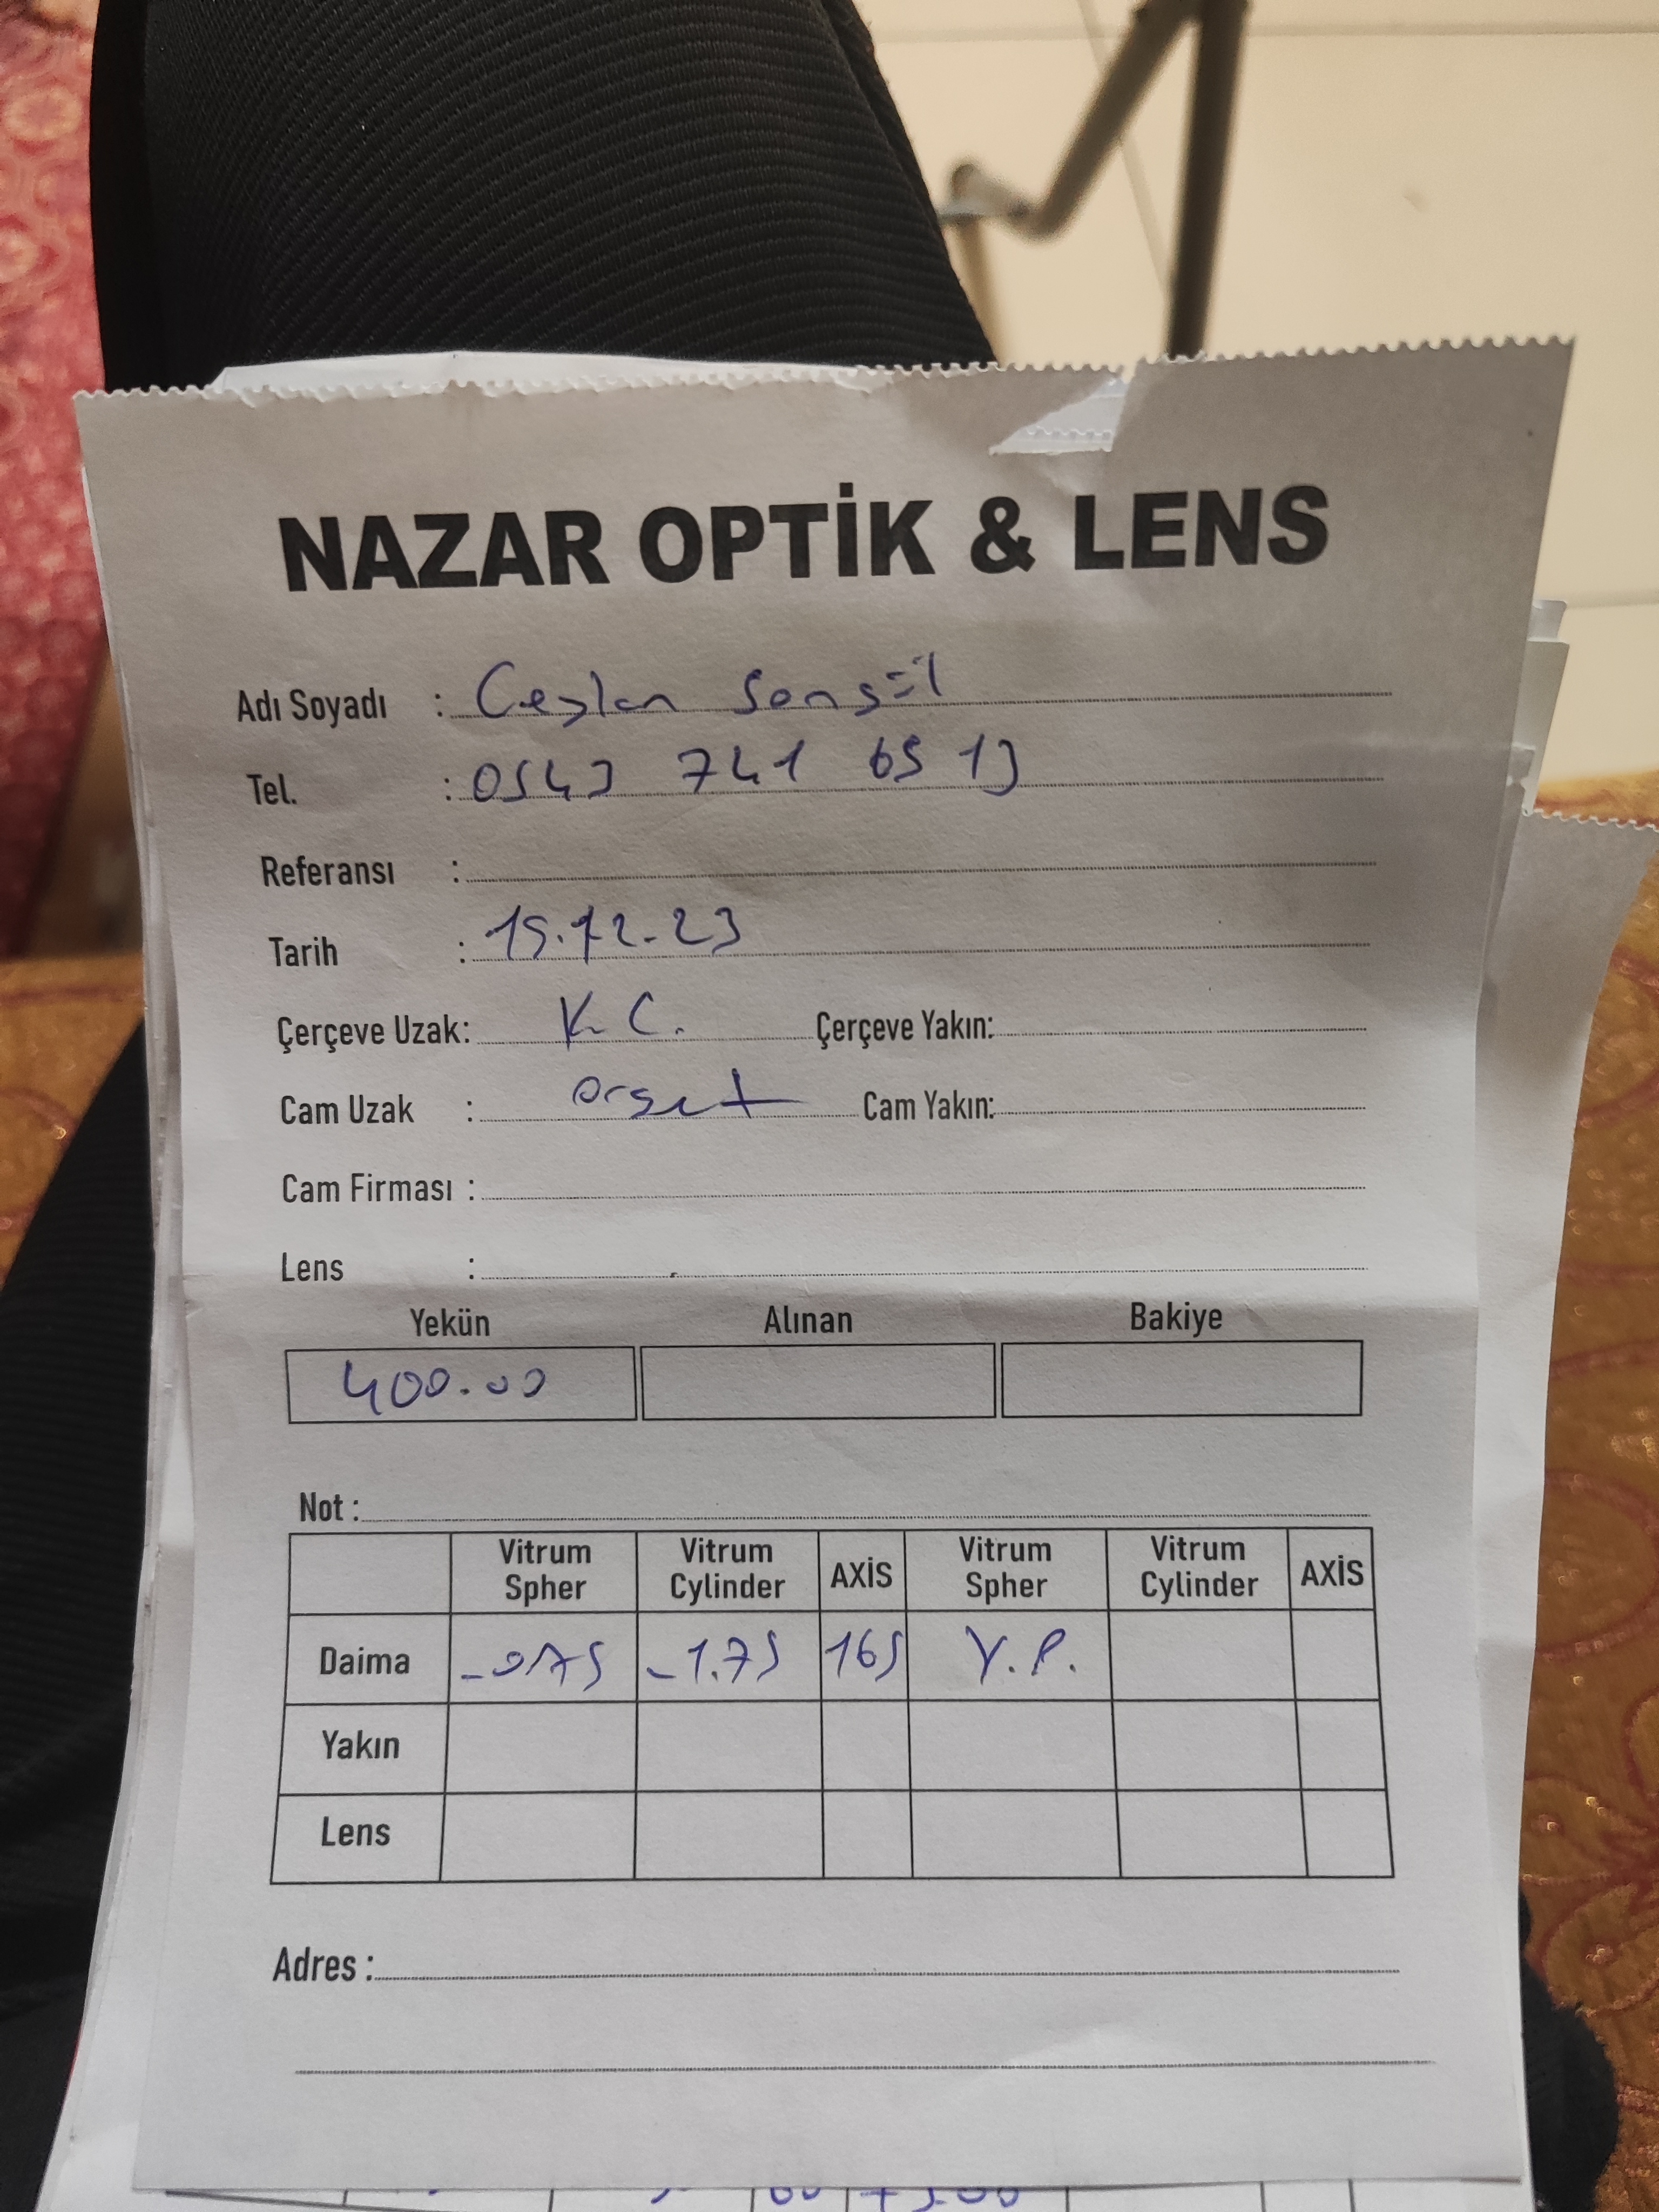 NAZAR OPTİK & LENS
Adı Soyadı : Ceylan Songül
Tel. : 0543 741 65 13
Referansı :
Tarih : 15.12.23
Çerçeve Uzak: K.C. Çerçeve Yakın:
Cam Uzak : Cam Yakın:
Cam Firması :
Lens :
Yekün Alınan Bakiye
400.00
Not :
Vitrum Spher Vitrum Cylinder AXİS Vitrum Spher Vitrum Cylinder AXİS
Daima -075 -1.75 165 Y.P.
Yakın
Lens
Adres :